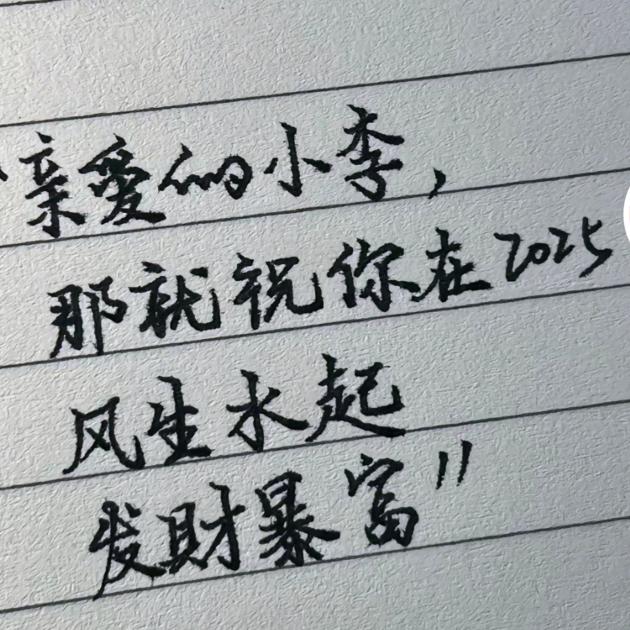 亲愛的小李，
那就祝你在2025
风生水起
发財暴富"